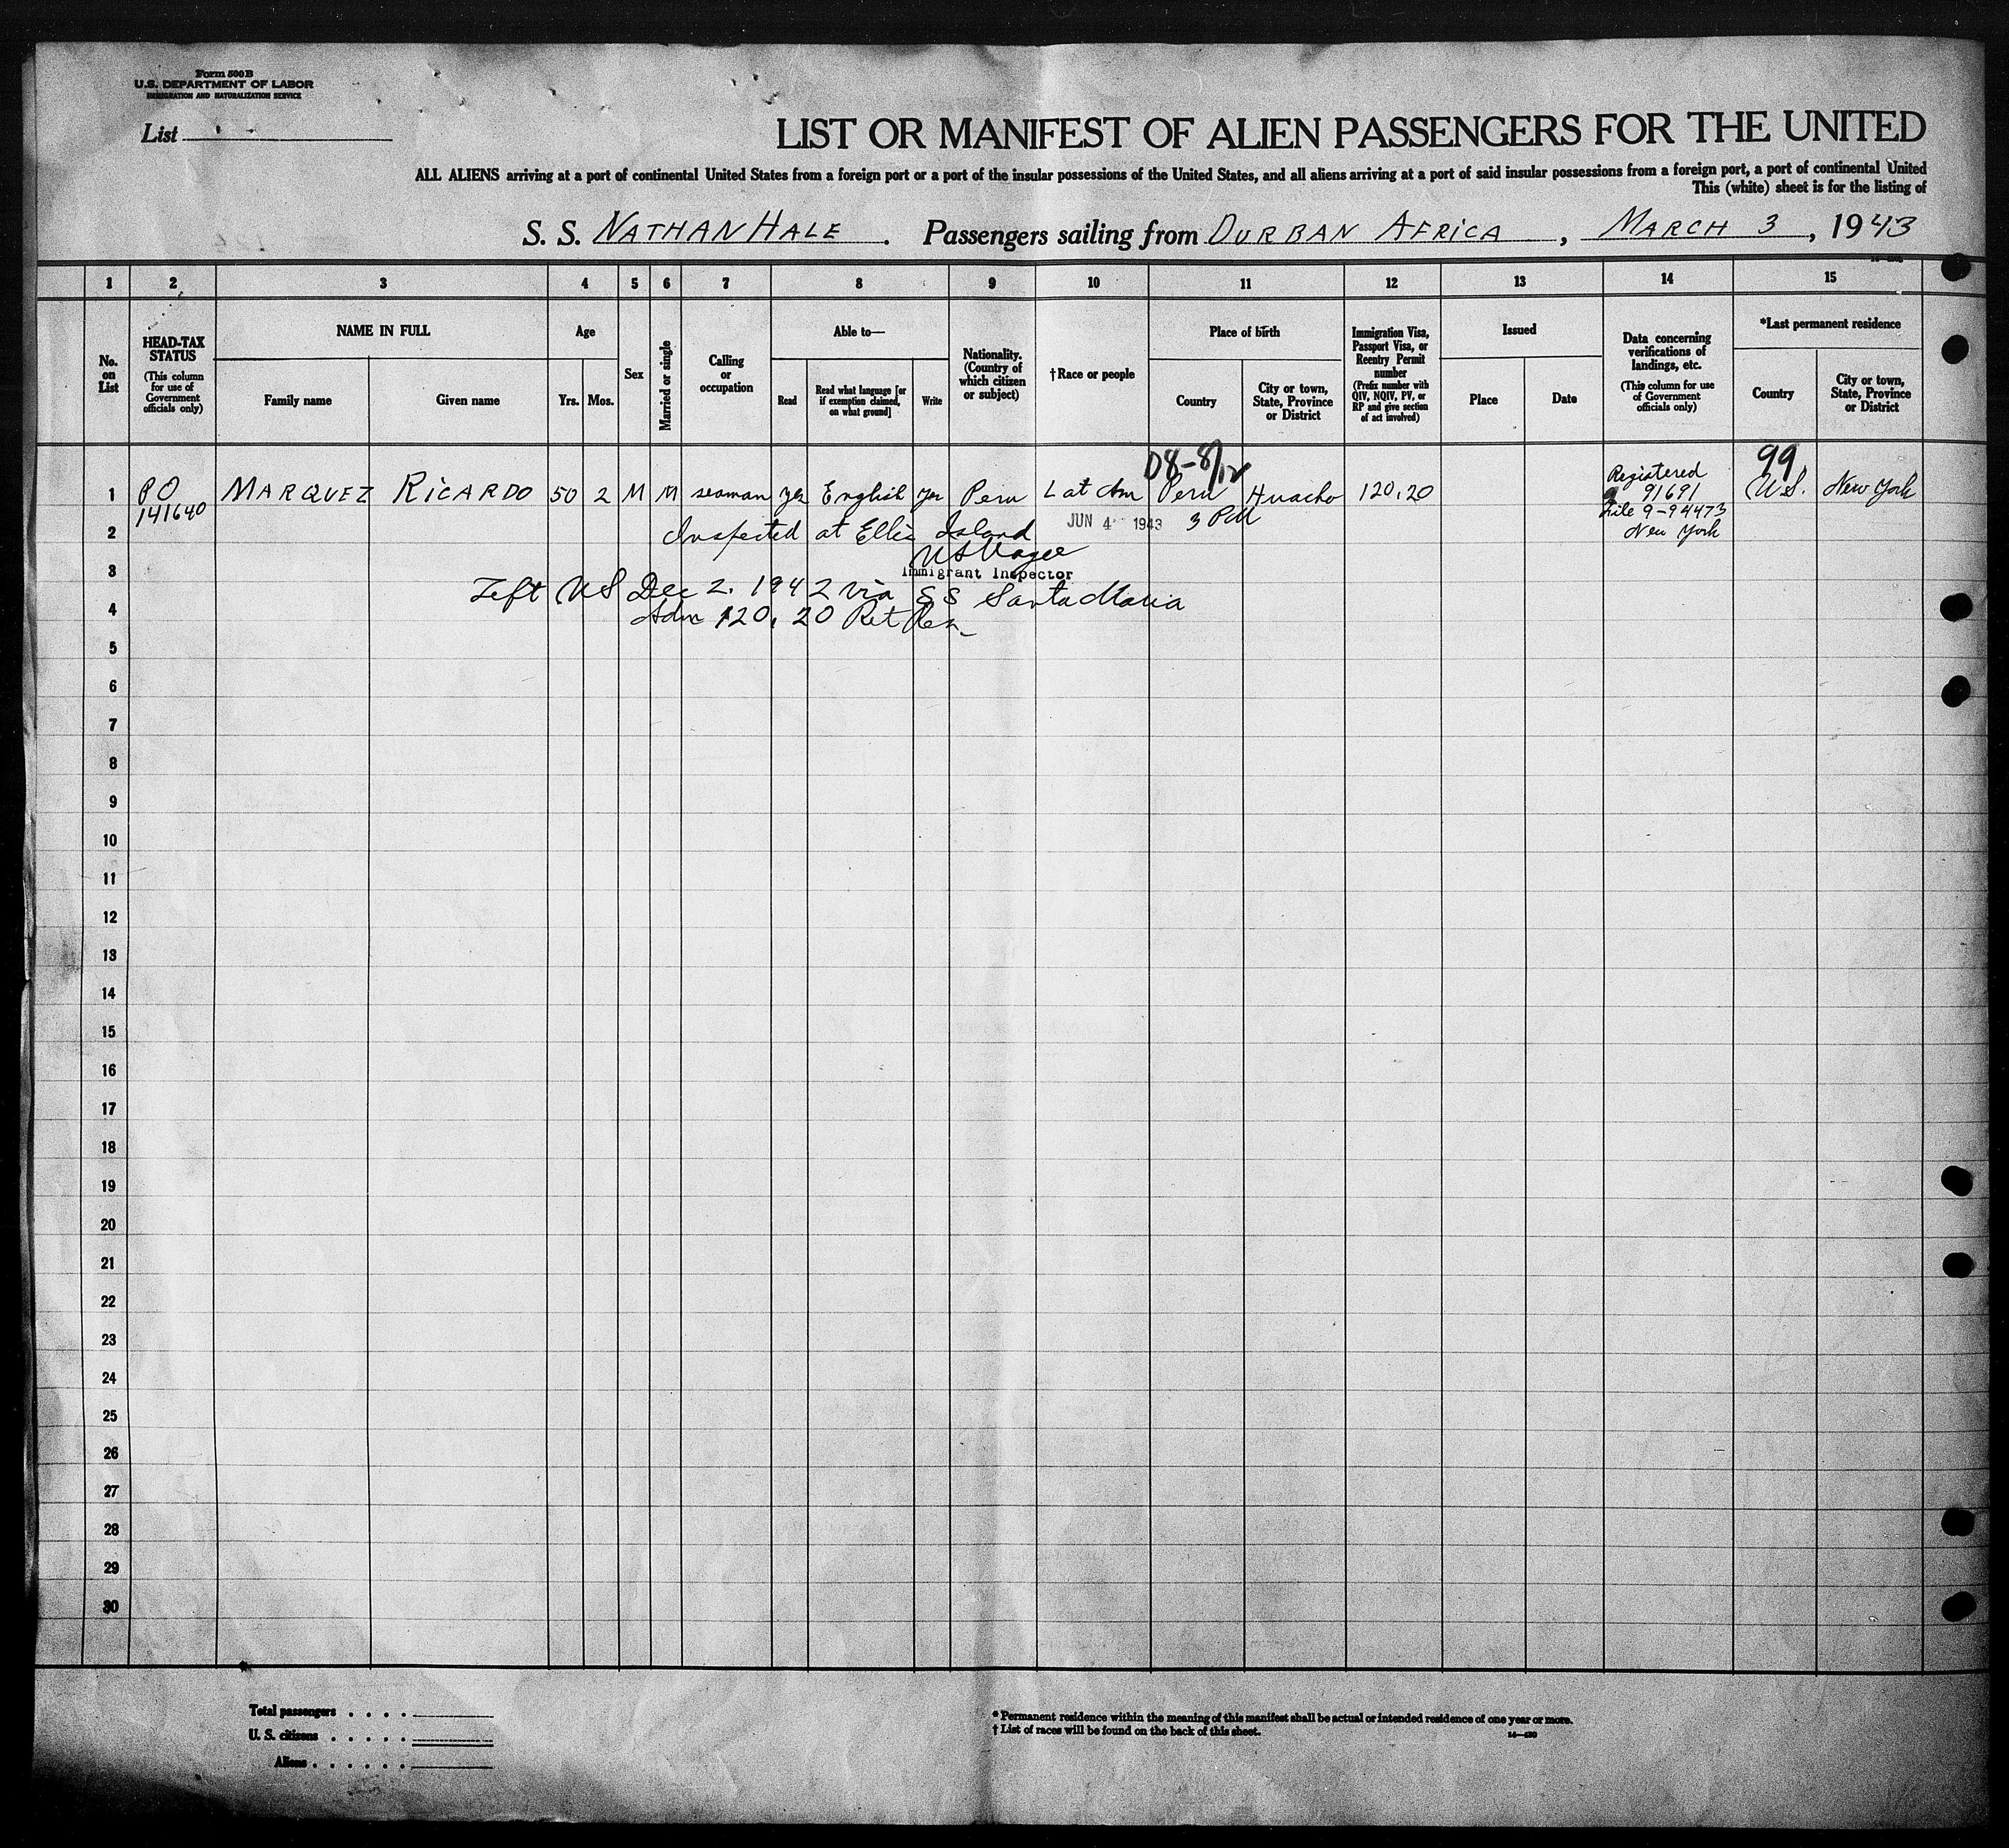 Form 500B
U.S. DEPARTMENT OF LABOR
IMMIGRATION AND NATURALIZATION SERVICE
List
LIST OR MANIFEST OF ALIEN PASSENGERS FOR THE UNITED
ALL ALIENS arriving at a port of continental United States from a foreign port or a port of the insular possessions of the United States, and all aliens arriving at a port of said insular possessions from a foreign port, a port of continental United
This (white) sheet is for the listing of
S. S. NATHAN HALE . Passengers sailing from DURBAN AFRICA , MARCH 3 , 1943
1 2 3 4 5 6 7 8 9 10 11 12 13 14 15
No. on List
HEAD-TAX STATUS (This column for use of Government officials only)
NAME IN FULL
Family name
Given name
Age
Yrs. Mos.
Sex
Married or single
Calling or occupation
Able to—
Read
Read what language [or if exemption claimed, on what ground]
Write
Nationality. (Country of which citizen or subject)
†Race or people
Place of birth
Country
City or town, State, Province or District
Immigration Visa, Passport Visa, or Reentry Permit number (Prefix number with QIV, NQIV, PV, or RP and give section of act involved)
Issued
Place
Date
Data concerning verifications of landings, etc. (This column for use of Government officials only)
*Last permanent residence
Country
City or town, State, Province or District
D8-8/12
99
1 PO 141640 MARQUEZ RICARDO 50 2 M M seaman yes English yes Peru Lat Am Peru Huacho 120.20 Registered 91691 File 9-94473 New York U.S. New York
2 Inspected at Ellis Island JUN 4 1943 3 PM
3 Immigrant Inspector
Left US Dec 2. 1942 via SS Santa Maria
4 Adm 120.20 Ret Res
5
6
7
8
9
10
11
12
13
14
15
16
17
18
19
20
21
22
23
24
25
26
27
28
29
30
Total passengers . . . .
U. S. citizens . . . . .
Aliens . . . . . .
* Permanent residence within the meaning of this manifest shall be actual or intended residence of one year or more.
† List of races will be found on the back of this sheet.